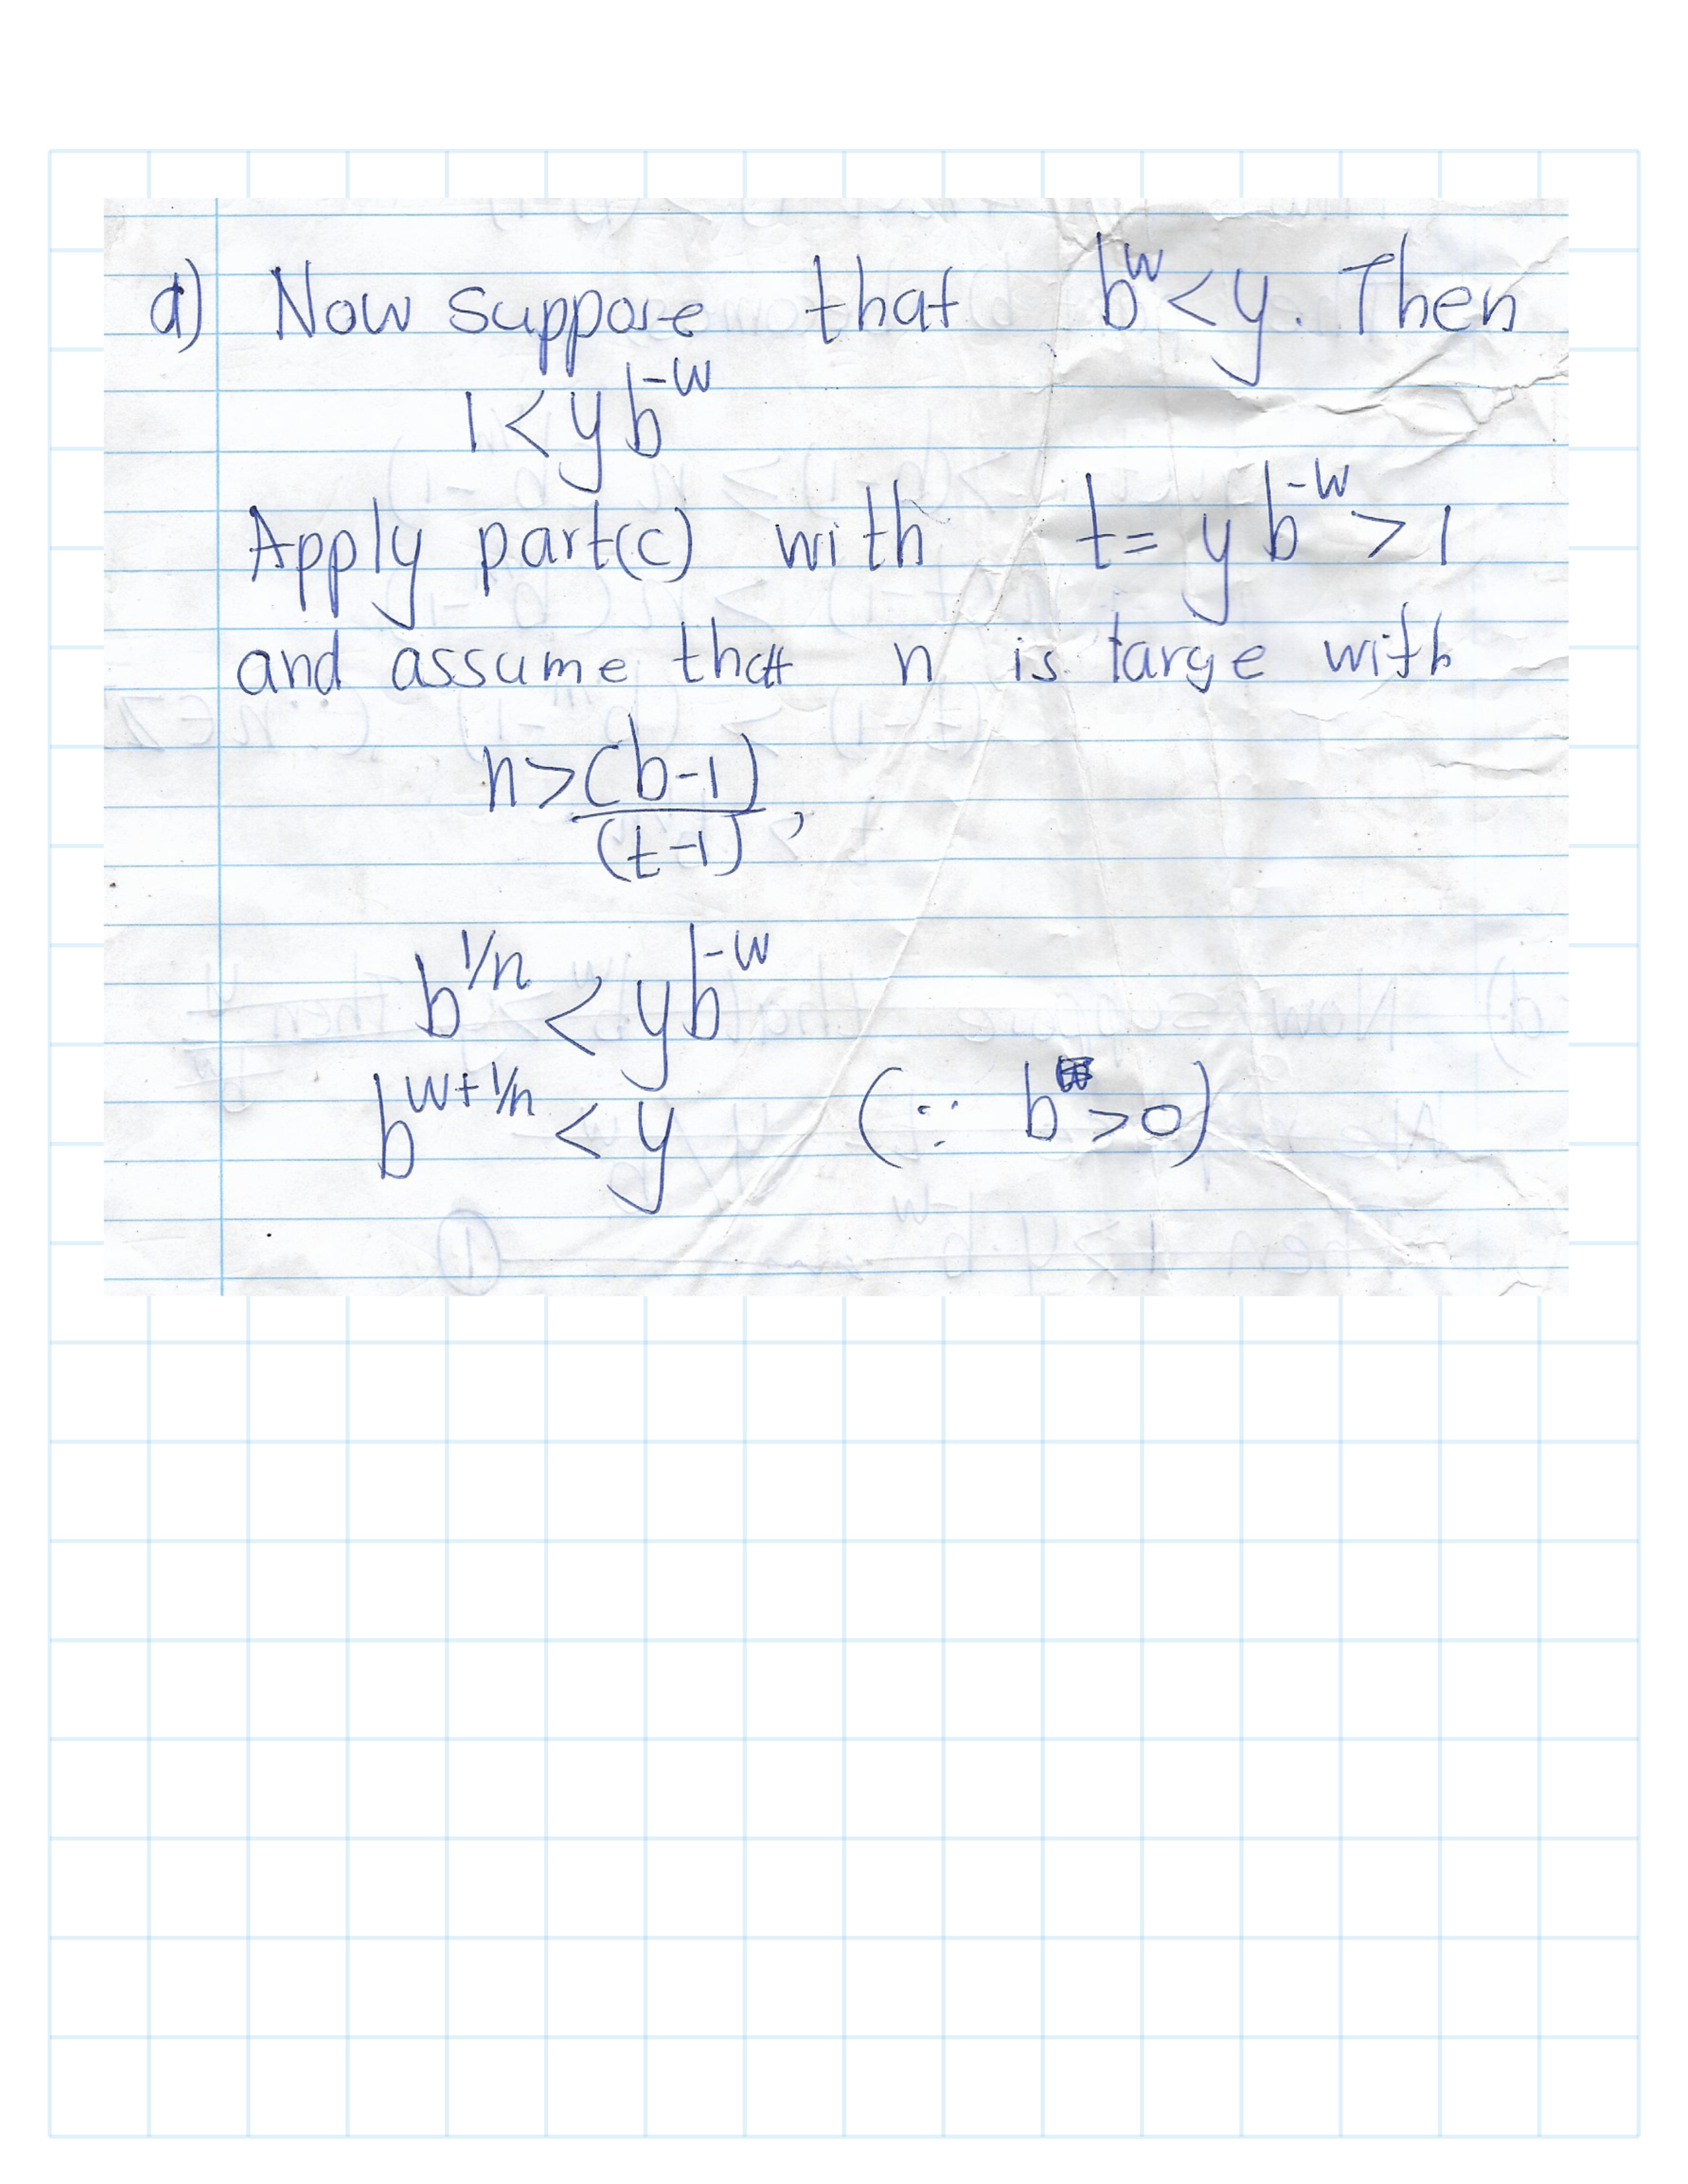 d) Now suppose that b^w < y. Then
1 < y b^-w
Apply part(c) with t = y b^-w > 1
and assume that n is large with
n > (b-1)/(t-1) ,
b^1/n < y b^-w
b^w+1/n < y (∵ b^w > 0)